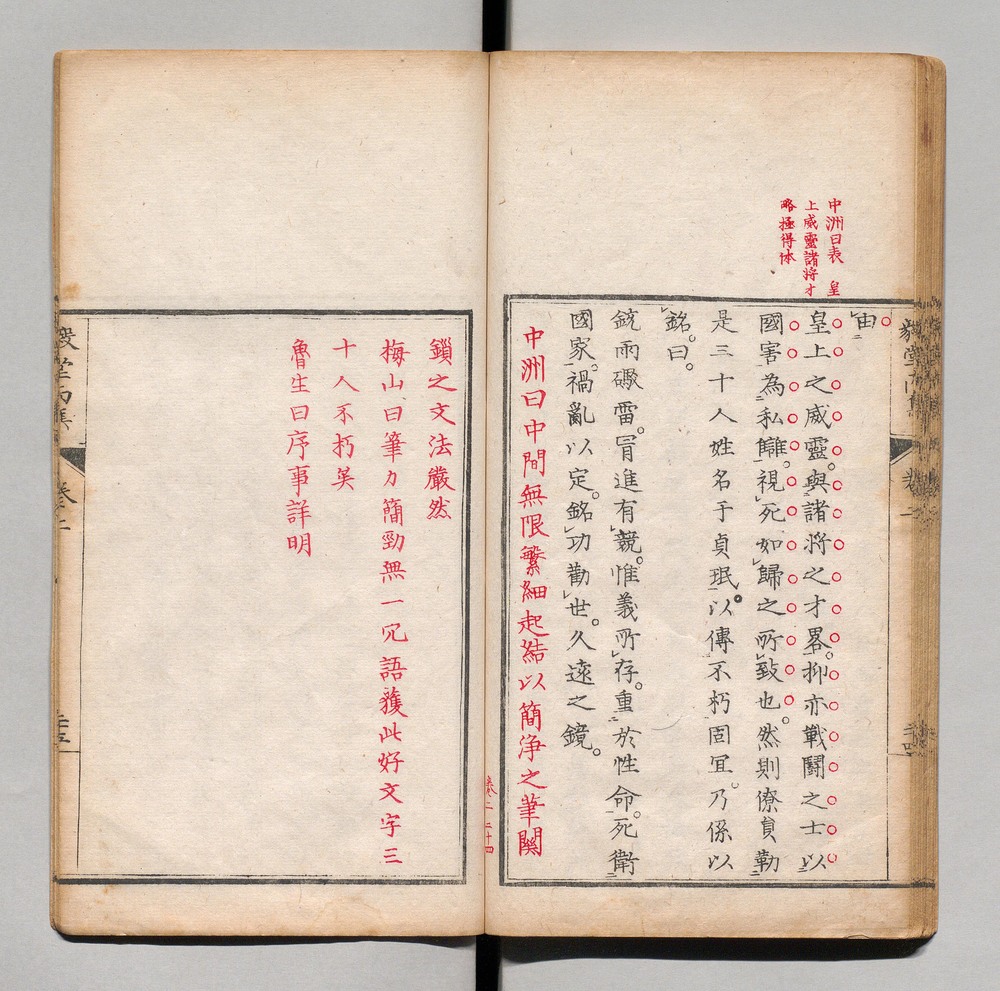 中洲曰表　皇
上威靈諸將才
略極得体
由
皇上之威靈。與諸將之才畧。抑亦戰鬪之士以
國害為私讎。視死如歸之所致也。然則僚負勒
是三十人姓名于貞珉。以傳不朽固宜。乃係以
銘。曰。
銃雨礮雷。冐進有競。惟義所存。重於性命。死衛
國家。禍亂以定。銘功勸世。久遠之鏡。
中洲曰中間無限繁細起結以簡浄之筆関
卷二 二十四
鎖之文法嚴然
梅山曰筆力簡勁無一冗語獲此好文字三
十人不朽矣
魯生曰序事詳明